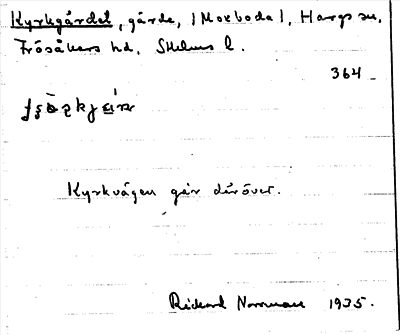 Kyrkgärdet, gärde, (Morboda), Hargs sn,
Frösåkers hd, Sthlms l.
364
Kyrkvägen går däröver.
Rickard Norrman 1935.